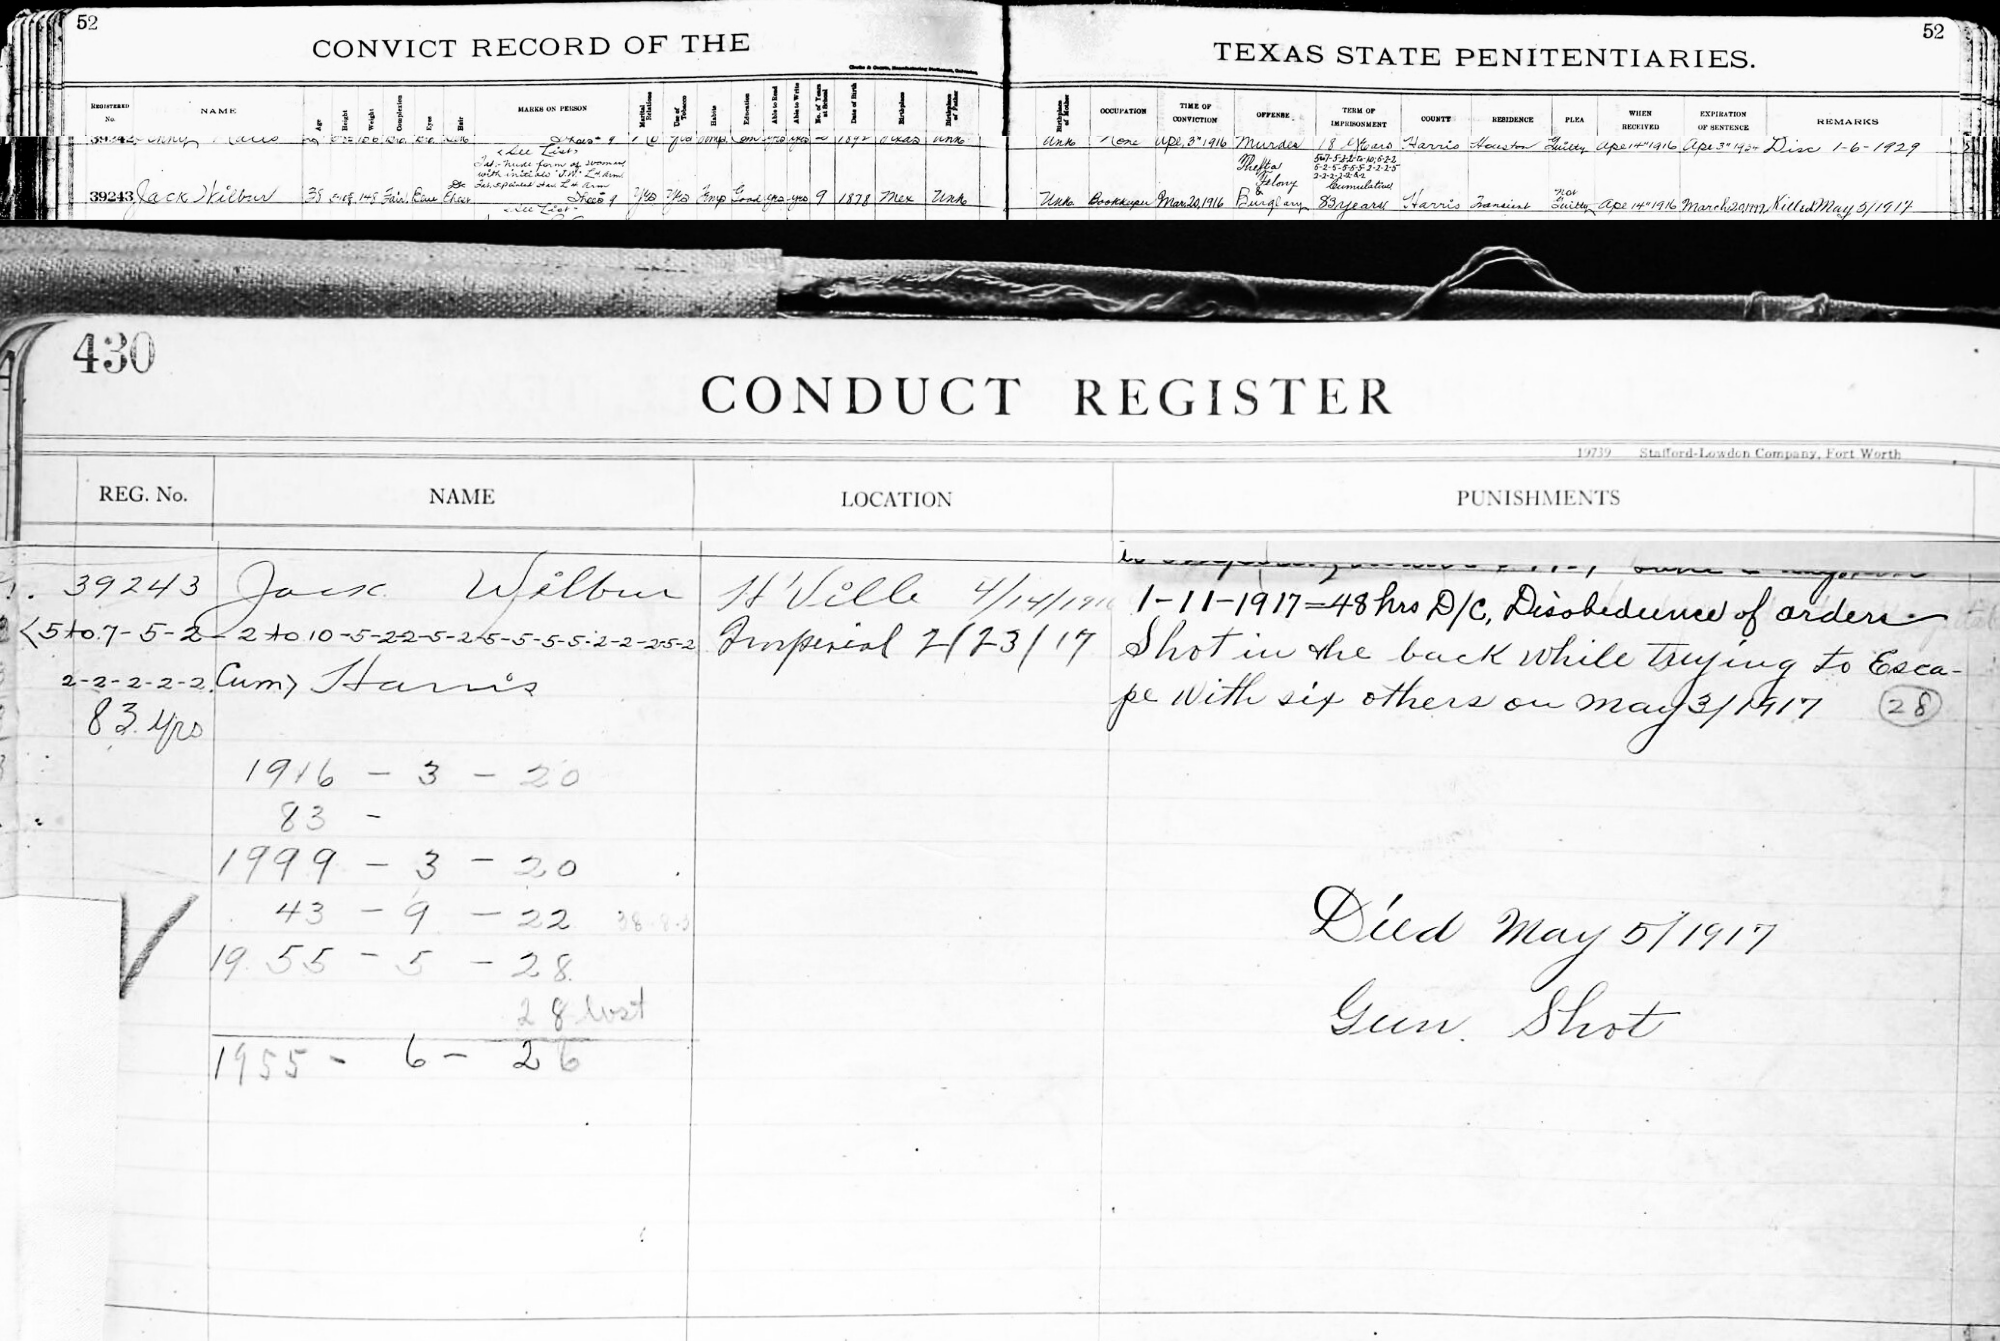 52
CONVICT RECORD OF THE
52
TEXAS STATE PENITENTIARIES.
REGISTERED No. NAME Age Height Weight Complexion Eyes Hair MARKS ON PERSON Marital Relations Use of Tobacco Habits Education Able to Read Able to Write No. of Years at School Date of Birth Birthplace Birthplace of Father Birthplace of Mother OCCUPATION TIME OF CONVICTION OFFENSE TERM OF IMPRISONMENT COUNTY RESIDENCE PLEA WHEN RECEIVED EXPIRATION OF SENTENCE REMARKS
39242 Shoes 9 yes yes 1892 Texas Unk Unk None Apr. 3" 1916 Murder 18 Years Harris Houston Guilty Apr 14" 1916 Apr 3" 1934 Disc 1-6-1929
<See List>
Tat- nude form of woman
with initials "J.W." L H arm
Thefts
Felony
&
Cumulative
39243 Jack Wilbur 38 148 Fair Blue Chest Shoes 9 Yes Yes Temp Good yes yes 9 1878 Mex Unk Unk Bookkeeper Mar. 20, 1916 Burglary 83 years Harris Transient Not Guilty Apr 14" 1916 March 20, 1999 Killed May 5/1917
<See List>
430
CONDUCT REGISTER
19739 Stafford-Lowdon Company, Fort Worth
REG. No. NAME LOCATION PUNISHMENTS
39243 Jack Wilbur H'Ville 4/14/191 1-11-1917=48 hrs D/C, Disobedience of orders
<5 to 7-5-2-2 to 10-5-2-2-5-2-5-5-5-5-2-2-2-5-2 Imperial 2/23/17 Shot in the back while trying to Esca-
2-2-2-2-2. Cum> Harris pe with six others on May 3/1917 28
83 yrs
1916 - 3 - 20
83 -
1999 - 3 - 20
43 - 9 - 22
1955 - 5 - 28
28 lost
1955 - 6 - 26
Died May 5/1917
Gun. Shot